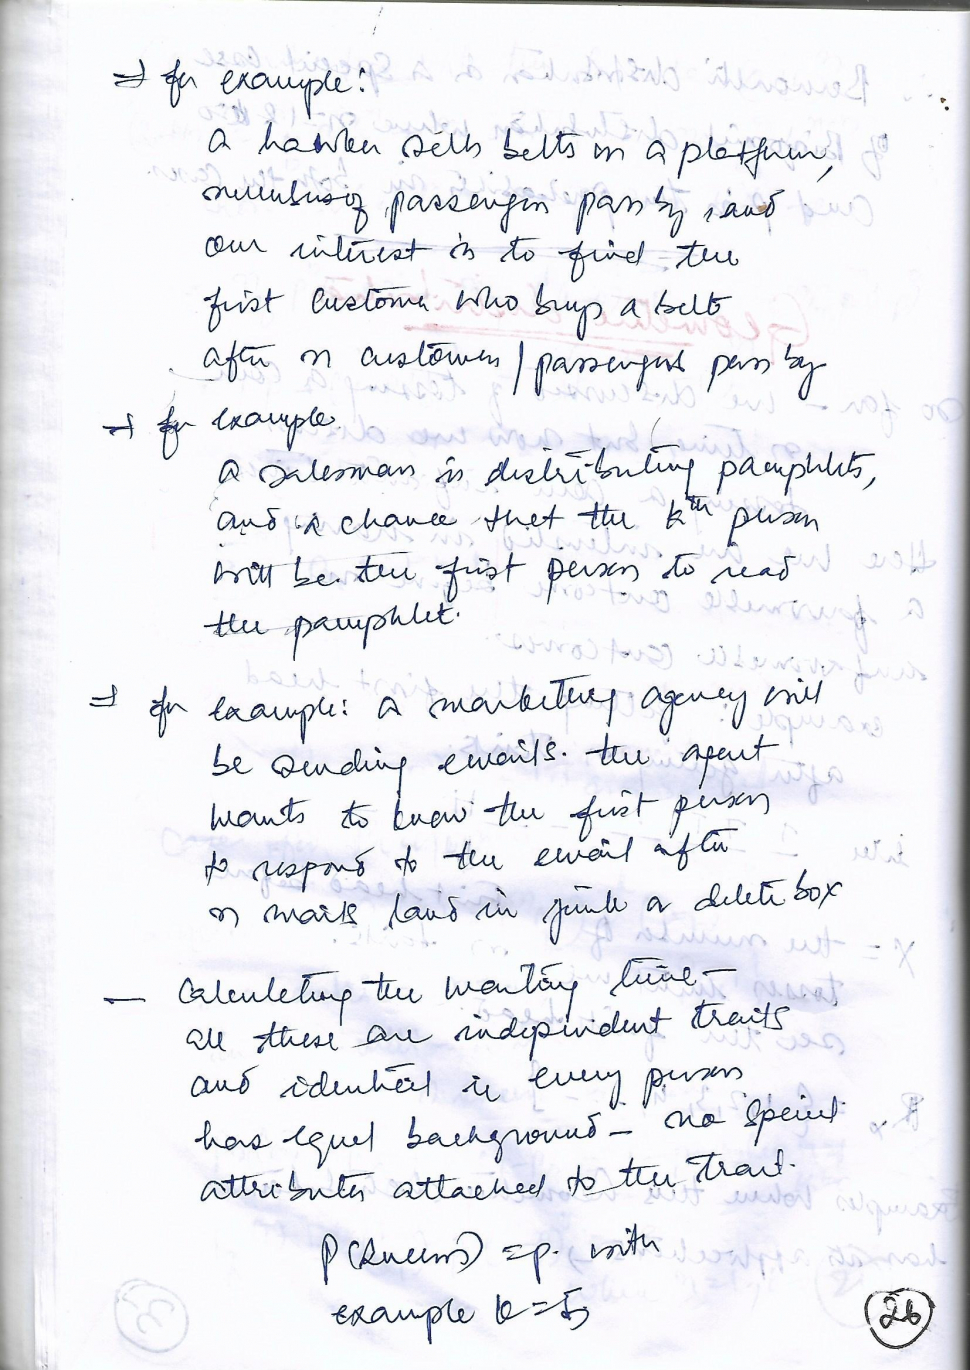 ⇒ for example:
a hawker sells belts on a platform,
number of passengers pass by, and
our interest is to find the
first customer who buys a belt
after n customers / passengers pass by
→ for example
a salesman is distributing pamphlets,
and a chance that the kth person
will be the first person to read
the pamphlet.
⇒ for example: a marketing agency will
be sending emails. the agent
wants to know the first person
to respond to the email after
n mails land in junk or delete box
— Calculating the waiting time —
all these are independent traits
and identical ie every person
has equal background — no special
attributes attached to the trait.
P(success) = p. with
example k = 5
26